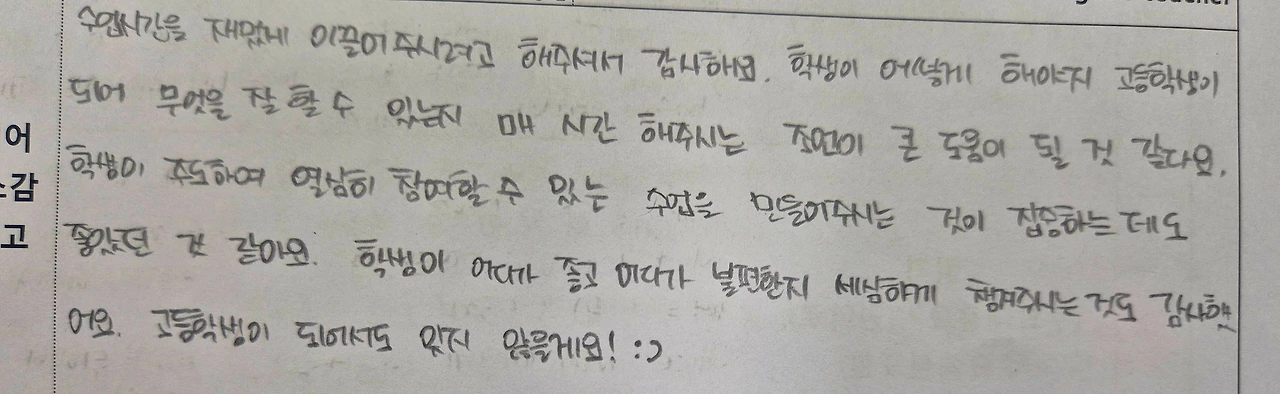 수업시간을 재밌게 이끌어주시려고 해주셔서 감사해요. 학생이 어떻게 해야지 고등학생이
되어 무엇을 잘 할 수 있는지 매 시간 해주시는 조언이 큰 도움이 될 것 같아요.
학생이 주도하여 열심히 참여할 수 있는 수업을 만들어주시는 것이 집중하는 데도
좋았던 것 같아요. 학생이 어디가 좋고 어디가 불편한지 세심하게 챙겨주시는 것도 감사했
어요. 고등학생이 되어서도 잊지 않을게요! :)
어
소감
고